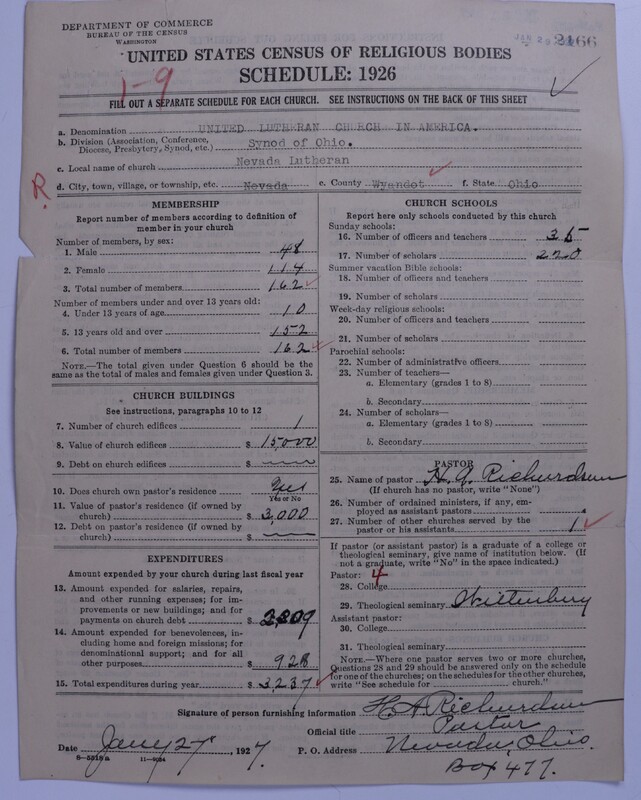 DEPARTMENT OF COMMERCE
BUREAU OF THE CENSUS
WASHINGTON
JAN 29 2166
UNITED STATES CENSUS OF RELIGIOUS BODIES
SCHEDULE: 1926
1-9
FILL OUT A SEPARATE SCHEDULE FOR EACH CHURCH. SEE INSTRUCTIONS ON THE BACK OF THIS SHEET
a. Denomination UNITED LUTHERAN CHURCH IN AMERICA.
b. Division (Association, Conference, Diocese, Presbytery, Synod, etc.) Synod of Ohio.
c. Local name of church Nevada Lutheran
R. d. City, town, village, or township, etc. Nevada e. County Wyandot f. State Ohio
MEMBERSHIP
Report number of members according to definition of
member in your church
Number of members, by sex:
1. Male 48
2. Female 114
3. Total number of members 162
Number of members under and over 13 years old:
4. Under 13 years of age 10
5. 13 years old and over 152
6. Total number of members 162
NOTE.—The total given under Question 6 should be
same as the total of males and females given under Question 3.
CHURCH BUILDINGS
See instructions, paragraphs 10 to 12
7. Number of church edifices 1
8. Value of church edifices $ 15,000
9. Debt on church edifices $
10. Does church own pastor's residence Yes
Yes or No
11. Value of pastor's residence (if owned by
church) $ 3,000
12. Debt on pastor's residence (if owned by
church) $
EXPENDITURES
Amount expended by your church during last fiscal year
13. Amount expended for salaries, repairs,
and other running expenses; for im-
provements or new buildings; and for
payments on church debt $ 2309
14. Amount expended for benevolences, in-
cluding home and foreign missions; for
denominational support; and for all
other purposes $ 928
15. Total expenditures during year $ 3237
CHURCH SCHOOLS
Report here only schools conducted by this church
Sunday schools:
16. Number of officers and teachers 35
17. Number of scholars 220
Summer vacation Bible schools:
18. Number of officers and teachers
19. Number of scholars
Week-day religious schools:
20. Number of officers and teachers
21. Number of scholars
Parochial schools:
22. Number of administrative officers
23. Number of teachers—
a. Elementary (grades 1 to 8)
b. Secondary
24. Number of scholars—
a. Elementary (grades 1 to 8)
b. Secondary
PASTOR
25. Name of pastor H. A. Richardson
(If church has no pastor, write "None")
26. Number of ordained ministers, if any, em-
ployed as assistant pastors
27. Number of other churches served by the
pastor or his assistants 1
If pastor (or assistant pastor) is a graduate of a college or
theological seminary, give name of institution below. (If
not a graduate, write "No" in the space indicated.)
Pastor: 4
28. College
29. Theological seminary Wittenburg
Assistant pastor:
30. College
31. Theological seminary
NOTE.—Where one pastor serves two or more churches,
Questions 28 and 29 should be answered only on the schedule
for one of the churches; on the schedules for the other churches,
write "See schedule for church."
Signature of person furnishing information H. A. Richardson
Official title Pastor
Date Jany 27 1927. P. O. Address Nevada, Ohio.
Box 477.
8—5518a 11—9084